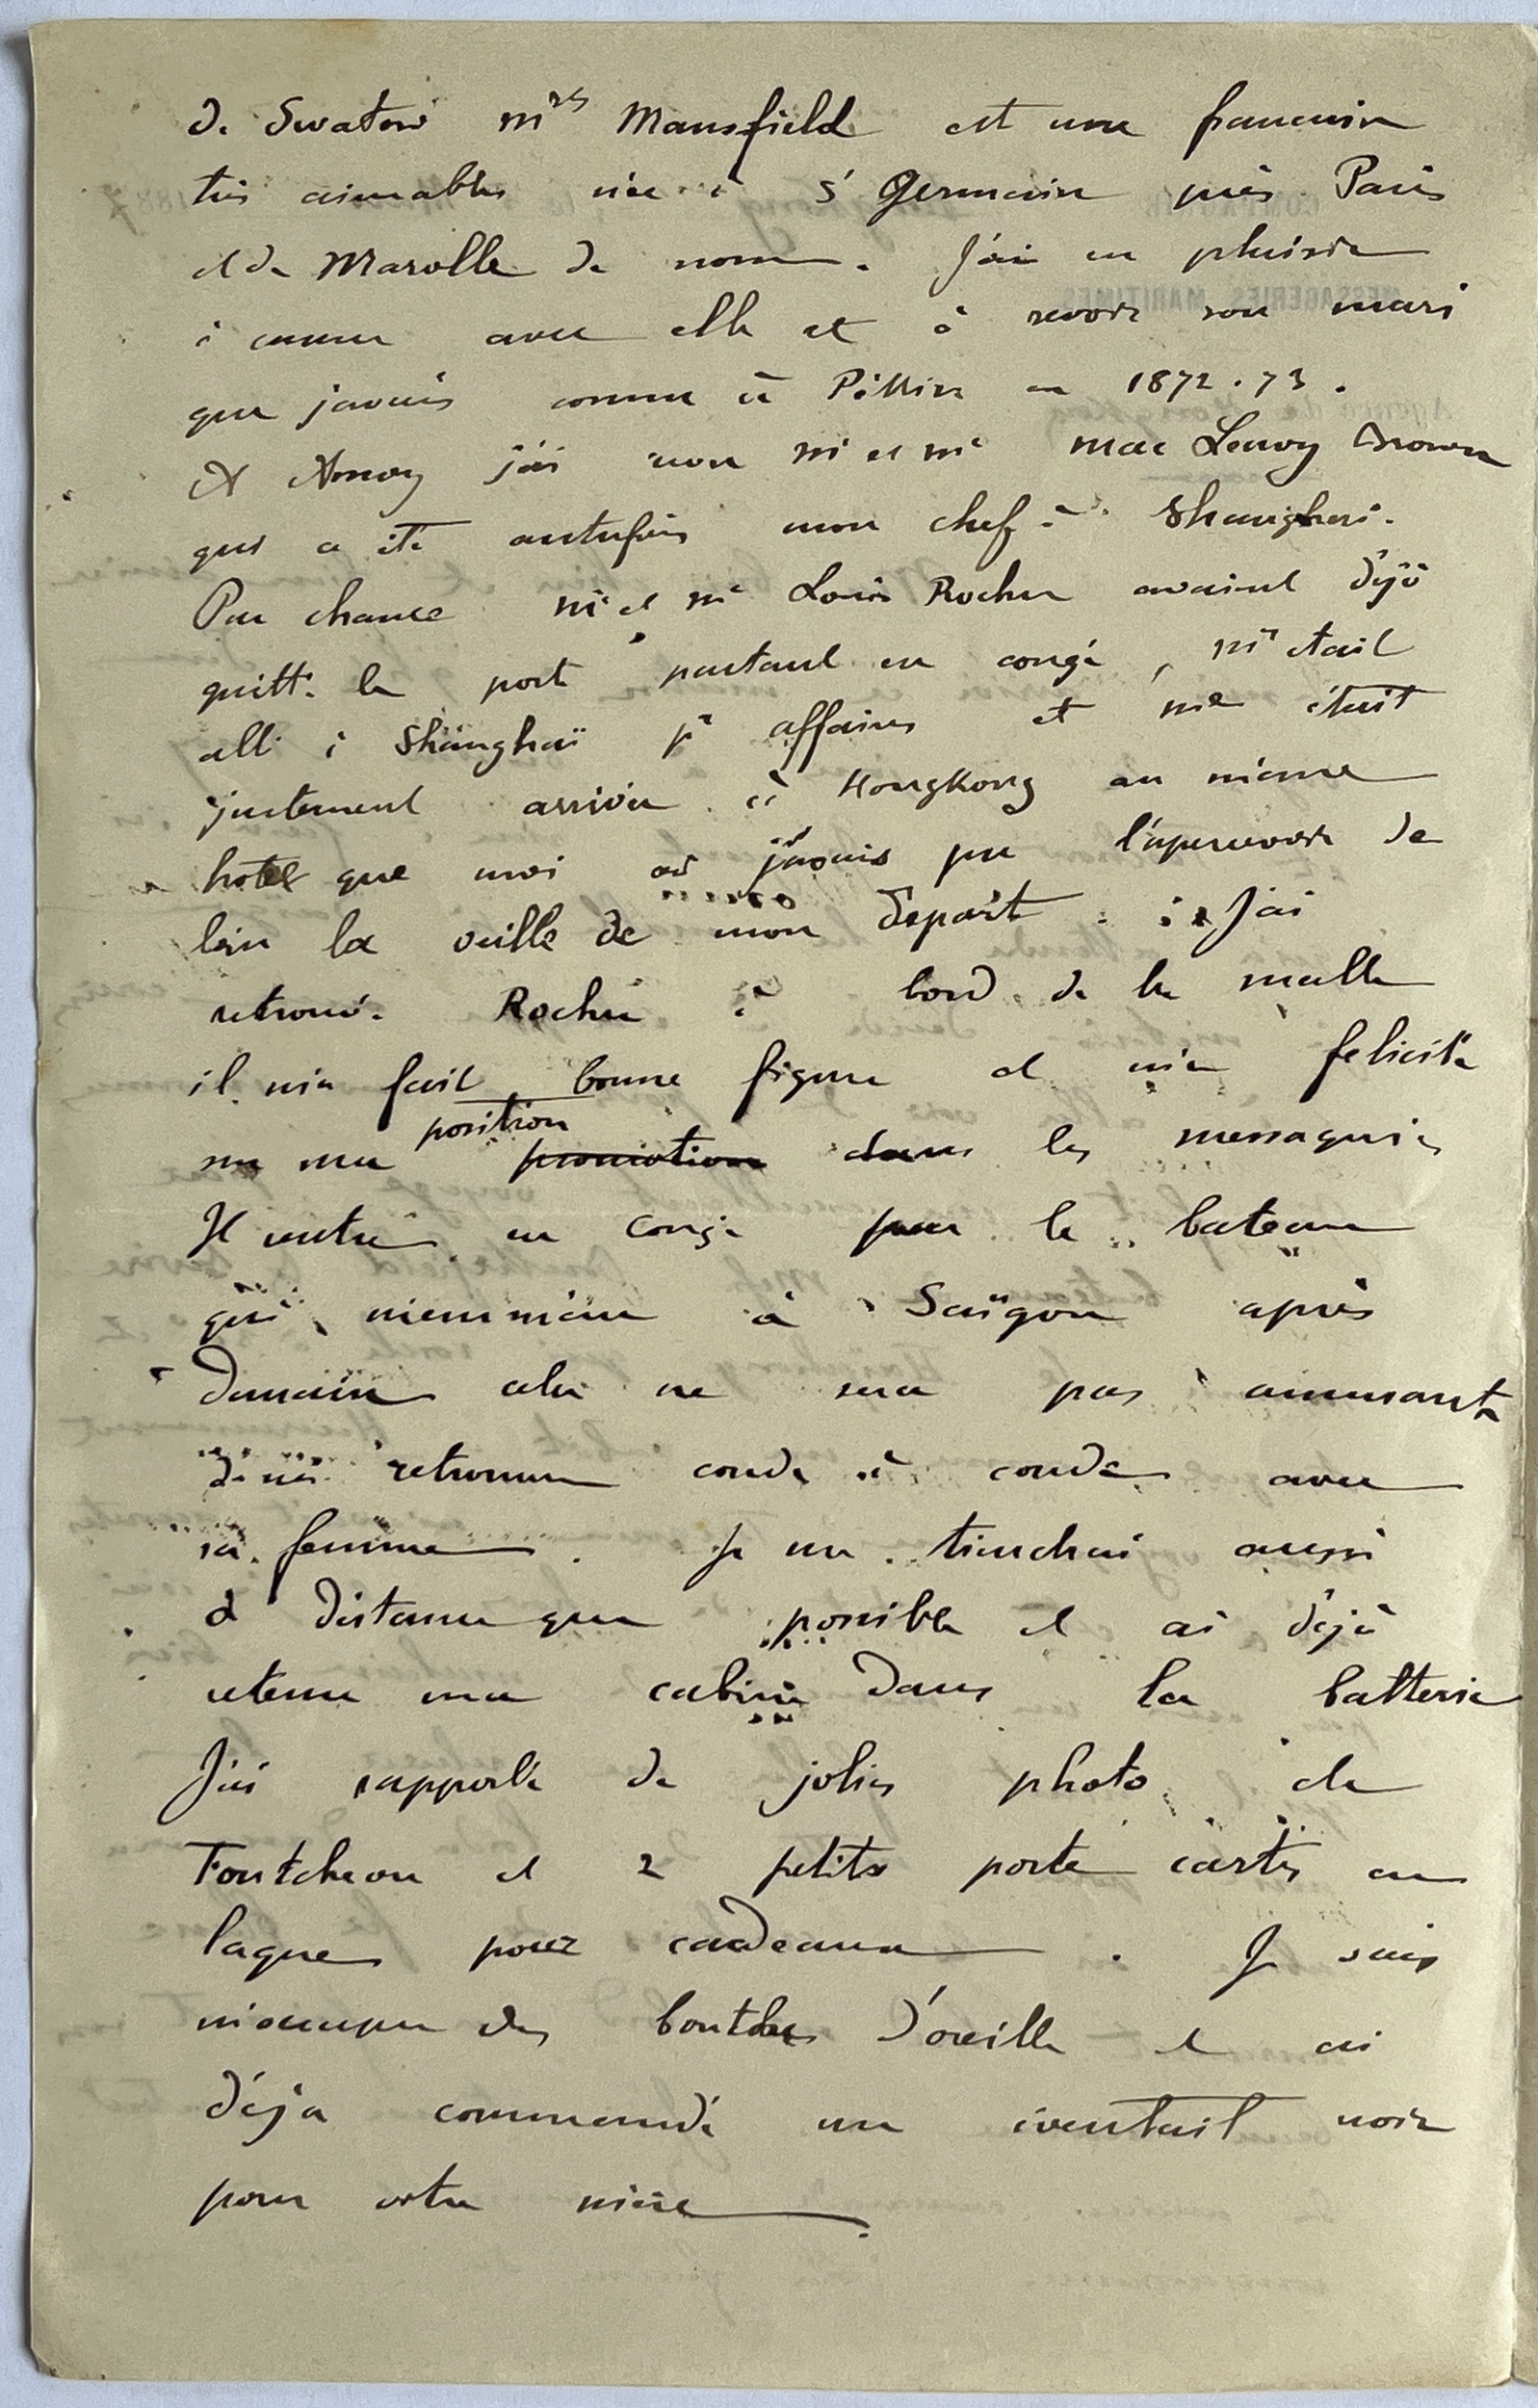 de Swatow Mrs Mansfield est une francaise
très aimable née à St Germain près Paris
et de Marolle de nom. J'ai eu plaisir
à causer avec elle et à revoir son mari
que j'avais connu à Pékin en 1872.73.
A Amoy j'ai vu Mr et Me Mac Leavy Brown
qui a été autrefois mon chef à Shanghai.
Par chance Mr et Me Louis Rocher avaient déjà
quitté le port partant en congé, Mr était
allé à Shanghaï pr affaires et Me était
justement arrivée à HongKong au même
hotel que moi où j'avais pu l'apercevoir de
loin la veille de mon départ. J'ai
retrouvé Rocher à bord de la malle
il m'a fait bonne figure et m'a felicité
sur ma position promotion dans les messageries
Il rentre en congé par le bateau
qui m'emmène à Saïgon après
Demain cela ne sera pas amusant
de me retrouver coude à coude avec
sa femme. Je me tiendrai aussi
à distance que possible et ai déjà
retenu ma cabine dans la batterie
J'ai rapporté de jolies photo de
Foutcheou et 2 petits porte cartes en
laque pour cadeaux. Je vais
m'occuper des boucles d'oreille et ai
déja commandé un éventail noir
pour votre mère.